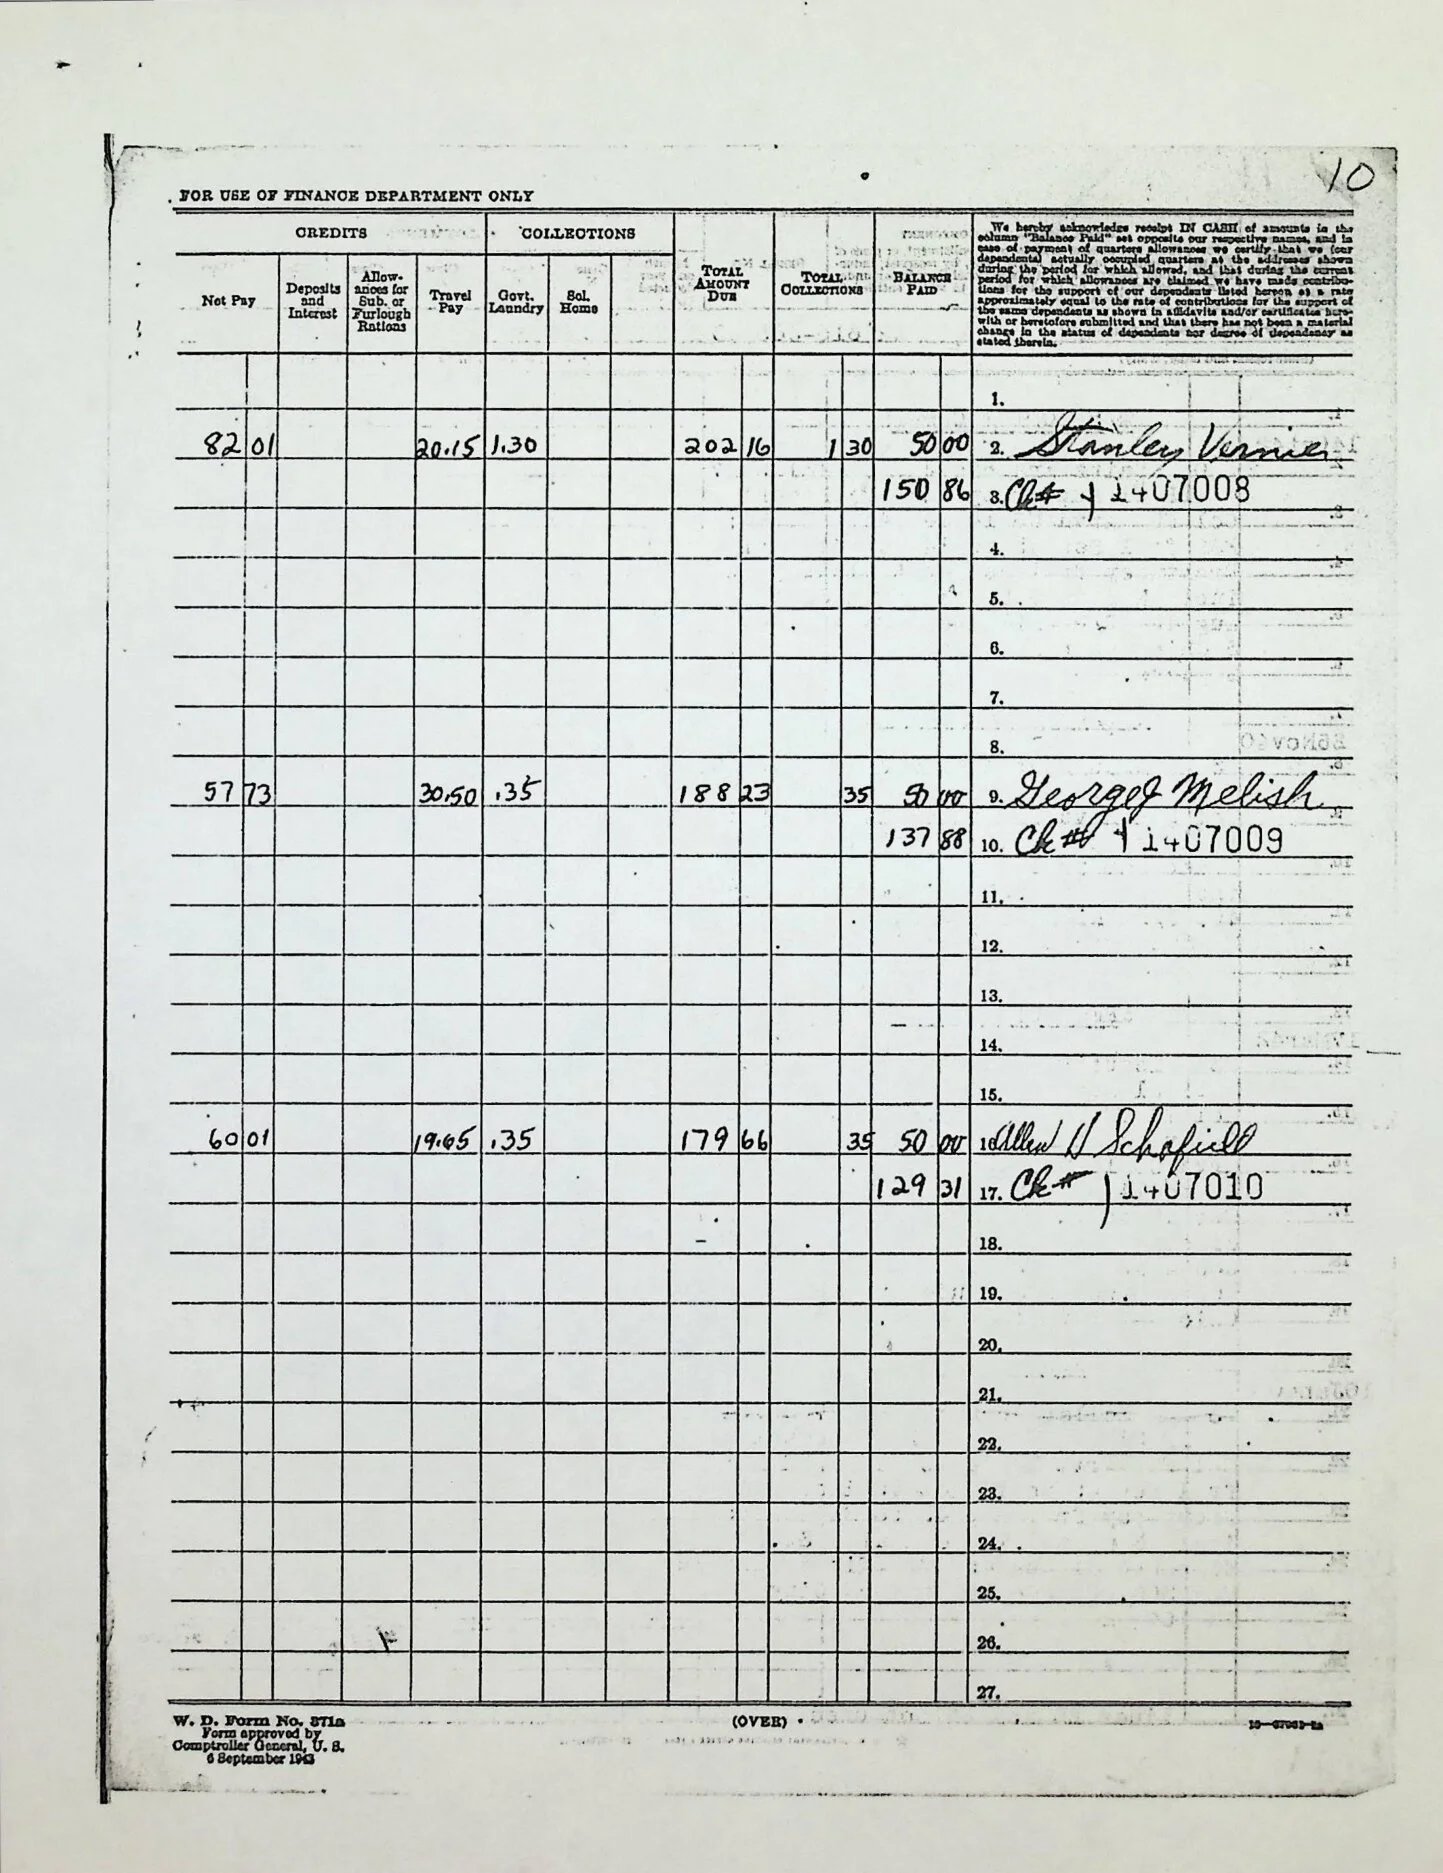 10
FOR USE OF FINANCE DEPARTMENT ONLY
CREDITS COLLECTIONS TOTAL AMOUNT DUE TOTAL COLLECTIONS BALANCE PAID
Net Pay Deposits and Interest Allow-ances for Sub. or Furlough Rations Travel Pay Govt. Laundry Sol. Home
We hereby acknowledge receipt IN CASH of amounts in the
column "Balance Paid" set opposite our respective names, and in
case of payment of quarters allowances we certify that we (our
dependents) actually occupied quarters at the addresses shown
during the period for which allowed, and that during the current
period for which allowances are claimed we have made contribu-
tions for the support of our dependents listed hereon at a rate
approximately equal to the rate of contributions for the support of
the same dependents as shown in affidavits and/or certificates here-
with or heretofore submitted and that there has not been a material
change in the status of dependents nor degree of dependency as
stated therein.
1.
82 01 20.15 1.30 202 16 1 30 50 00 2. Stanley Vernier
150 86 3. Ck# 1407008
4.
5.
6.
7.
8.
57 73 30.50 .35 188 23 35 50 00 9. George J Melish
137 88 10. Ck# 1407009
11.
12.
13.
14.
15.
60 01 19.65 .35 179 66 35 50 00 16. Allen H Schofield
129 31 17. Ck# 1407010
18.
19.
20.
21.
22.
23.
24.
25.
26.
27.
W. D. Form No. 371a
Form approved by
Comptroller General, U. S.
6 September 1943
(OVER)